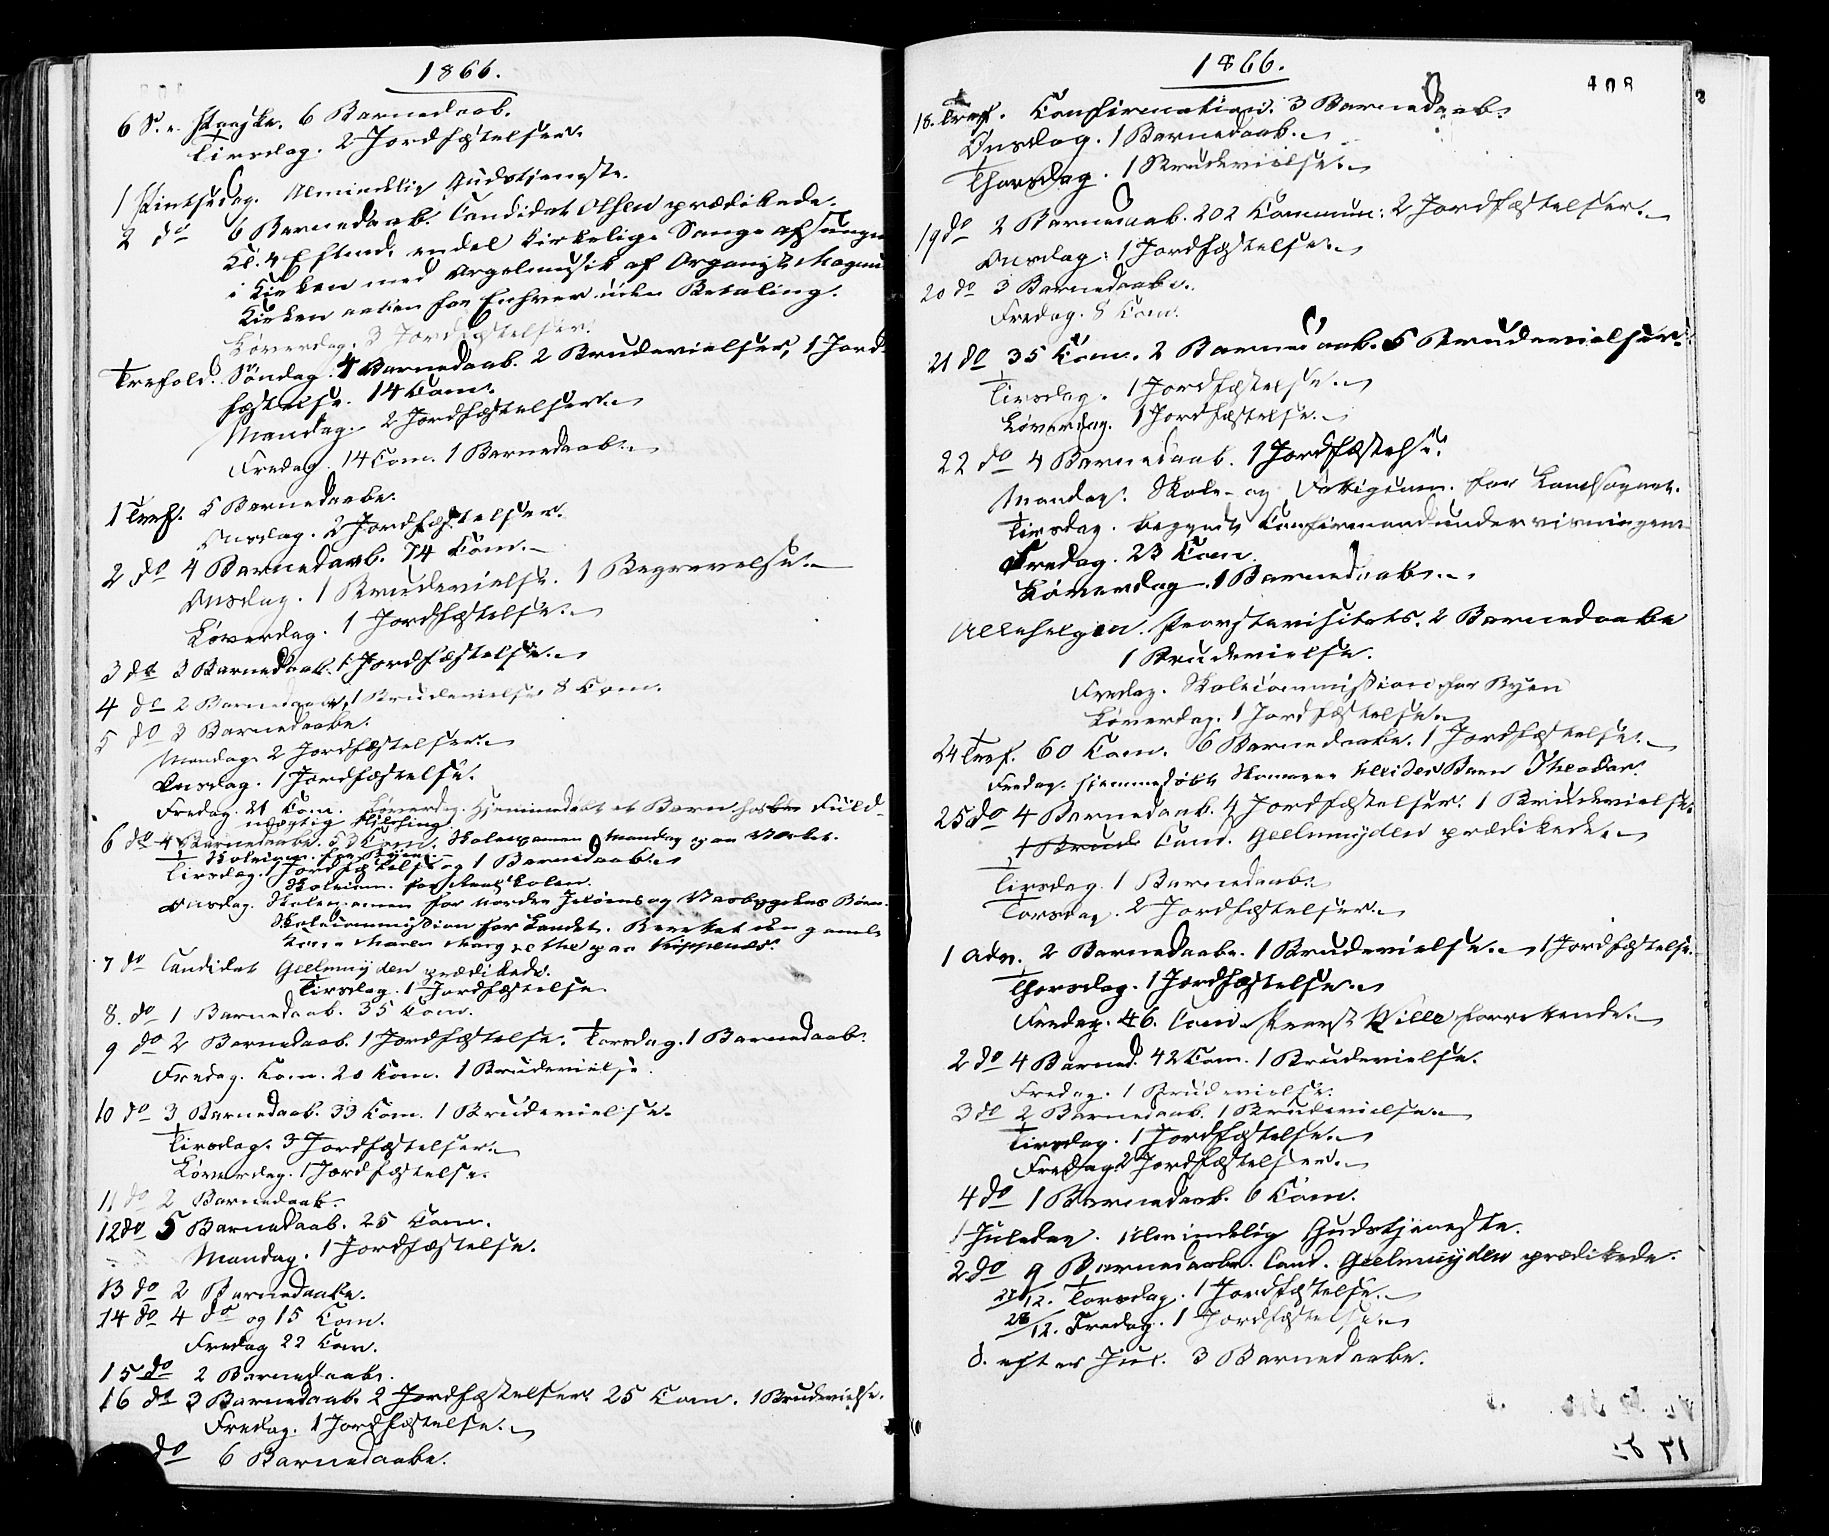 1866.
6 S. e. Paaske. 6 Barnedaab.
Tirsdag. 2 Jordfæstelser.
1 Pintsedag. Almindelig Gudstjeneste.
2 do 6 Barnedaab. Candidat Olsen prædikede.
Kl. 4 Eftmd. endel kirkelige Sange afsungne
i Kirken med Orgelmusik af Organist Magnus
Kirken aaben for Enhver uden Betaling.
Løverdag. 3 Jordfæstelser.
Trefold. Søndag. 4 Barnedaab. 2 Brudevielser, 1 Jord-
fæstelse. 14 Com.
Mandag. 2 Jordfæstelser.
Fredag. 14 Com. 1 Barnedaab.
1 Tref. 5 Barnedaabe.
Onsdag. 2 Jordfæstelser.
2 do 4 Barnedaab. 74 Com.
Onsdag. 1 Brudevielse. 1 Begravelse.
Løverdag. 1 Jordfæstelse.
3 do 3 Barnedaab. 1 Jordfæstelse.
4 do 2 Barnedaab, 1 Brudevielse 8 Com.
5 do 3 Barnedaabe.
Mandag 2 Jordfæstelser.
Onsdag. 1 Jordfæstelse.
Fredag. 21 Com. Løverdag. Hjemmedøbt et Barn hos Fuld-
mægtig
6 do 4 Barnedaabe. 53 Com. Skoleexamen Mandag paa Værket.
Tirsdag. 1 Jordfæstelse og 1 Barnedaab.
Onsdag. Skoleexamen for nordre Jeløens og Børn.
Skolecommission for Landet. Besøgt den gamle
Kone Maren Margrethe paa Kippenes.
7 do Candidat Geelmuyden prædikede.
Tirsdag. 1 Jordfæstelse
8. do 1 Barnedaab. 35 Com.
9 do 2 Barnedaab. 1 Jordfæstelse. Torsdag. 1 Barnedaab.
Fredag. Com. 20 Com. 1 Brudevielse.
10 do 3 Barnedaab. 33 Com. 1 Brudevielse.
Tirsdag. 3 Jordfæstelser.
Løverdag. 1 Jordfæstelse.
11 do 2 Barnedaab.
12 do 5 Barnedaab. 25 Com.
Mandag. 1 Jordfæstelse.
13 do 2 Barnedaabe.
14 do 4 do og 15 Com.
Fredag 22 Com.
15 do 2 Barnedaab.
16 do 3 Barnedaab. 2 Jordfæstelser 25 Com. 1 Brudevielse.
Fredag. 1 Jordfæstelse.
do 6 Barnedaabe.
1866.
408
18. Tref. Confirmation. 3 Barnedaab.
Onsdag. 1 Barnedaab.
Thorsdag. 1 Brudevielse.
19 do 2 Barnedaab. 202 Commun: 2 Jordfæstelser.
Onsdag: 1 Jordfæstelse.
20 do 3 Barnedaabe.
Fredag. 8 Com.
21 do 35 Com. 2 Barnedaab. 5 Brudevielser.
Tirsdag. 1 Jordfæstelse.
Løverdag. 1 Jordfæstelse.
22 do 4 Barnedaab. 1 Jordfæstelse.
Mandag. Skole- og Fattigcom. for Landsognet.
Tirsdag. begyndt Confirmandundervisningen
Fredag. 23 Com.
Løverdag. 1 Barnedaab.
Allehelgen. Provstevisitats. 2 Barnedaabe
1 Brudevielse.
Fredag. Skolecommission for Byen
Løverdag. 1 Jordfæstelse.
24 Tref. 60 Com. 6 Barnedaabe. 1 Jordfæstelse.
Fredag. hjemmedøbt Barn Theodor.
25 do 4 Barnedaab. 4 Jordfæstelser. 1 Brudevielse
Cand. Geelmuyden prædikede.
Tirsdag. 1 Barnedaab.
Torsdag. 2 Jordfæstelser.
1 Adv. 2 Barnedaabe. 1 Brudevielse. 1 Jordfæstelse.
Thorsdag. 1 Jordfæstelse.
Fredag. 46. Com. Provst Wille forrettende.
2 do 4 Barned. 42 Com. 1 Brudevielse.
Fredag. 1 Brudevielse.
3 do 2 Barnedaab. 1 Brudevielse.
Tirsdag. 1 Jordfæstelse.
Fredag 2 Jordfæstelser.
4 do 1 Barnedaab. 6 Com.
1 Juledag. Almindelig Gudstjeneste.
2 do 9 Barnedaabe. Cand. Geelmuyden prædikede.
27/12. Torsdag. 1 Jordfæstelse.
28/12. Fredag. 1 Jordfæstelse.
S. efter Jul. 3 Barnedaabe.